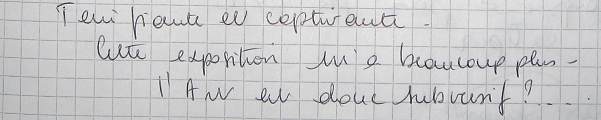 Terrifiante et captivante.
Cette exposition m'a beaucoup plu.
l'Art est donc subversif ?....